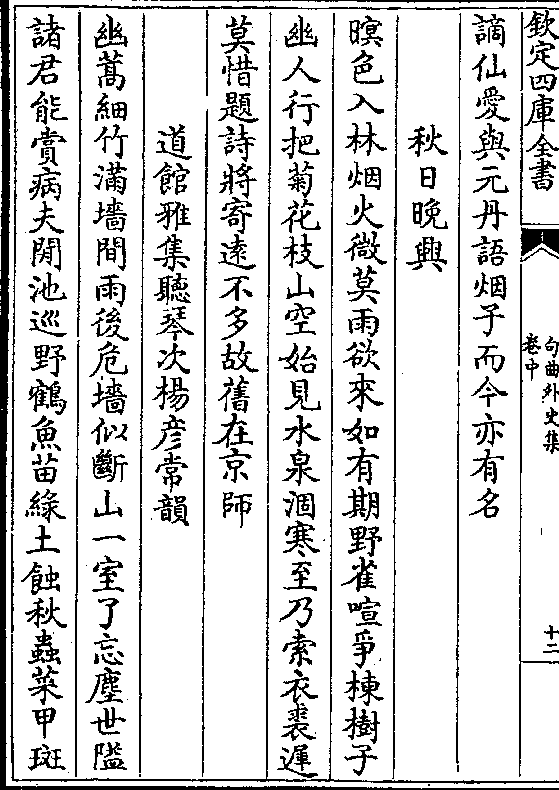 欽定四庫全書
句曲外史集
卷中
十二
謫仙愛與元丹語烟子而今亦有名
秋日晚興
暝色入林烟火微莫雨欲來如有期野雀喧爭棟樹子
幽人行把菊花枝山空始見水泉涸寒至乃索衣裘遲
莫惜題詩將寄遠不多故舊在京師
道館雅集聽琴次楊彦常韻
幽蒿細竹滿墻間雨後危墻似斷山一室了忘塵世隘
諸君能賞病夫閒池巡野鶴魚苗緑土蝕秋蟲菜甲斑